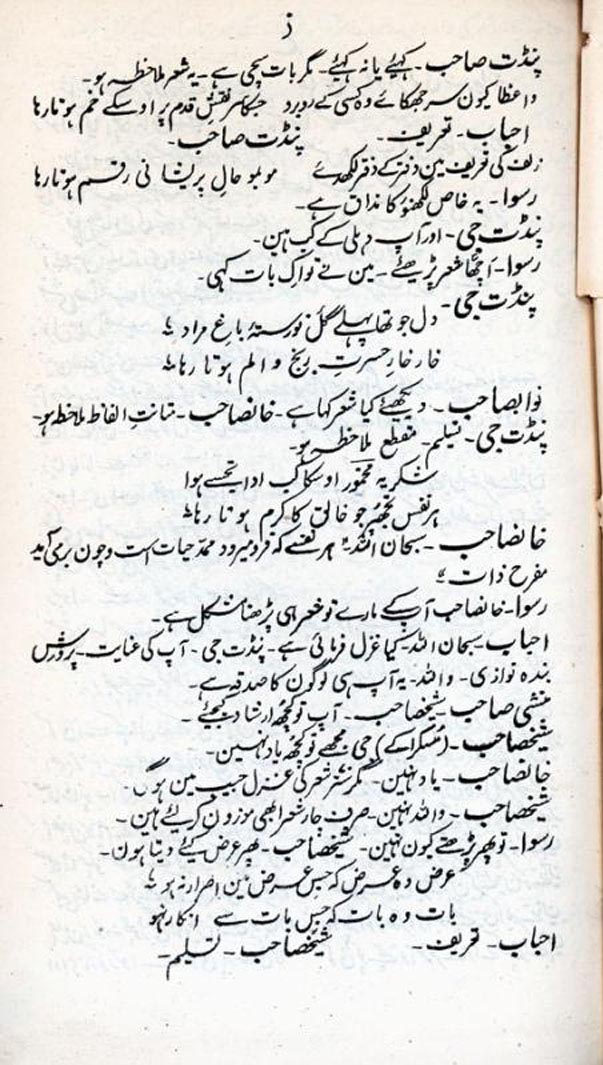 ز
پنڈت صاحب۔ کہئے یا نہ کہئے۔ مگر بات سچی ہے۔ یہ شعر ملاحظہ ہو۔
واعظا کیون سر جھکائے وہ کسی کے روبرو جسکا سر نقش قدم پر اوسکے خم ہوتا رہا
احباب۔ تعریف۔ پنڈت صاحب۔
زلف کی تعریف مین دفتر کے دفتر لکھدئے مو بمو حال پریشانی رقم ہوتا رہا
رسوا۔ یہ خاص لکھنؤ کا مذاق ہے۔
پنڈت جی۔ اور آپ دہلی کے کب ہین۔
رسوا۔ اچھا شعر پڑھئے۔ مین نے تو اک بات کہی۔
پنڈت جی۔
دل جو تھا پہلے گل نورستۂ باغ مراد
خار خار حسرت رنج و الم ہوتا رہا
نوابصاحب۔ دیکھئے کیا شعر کہا ہے۔ خانصاحب۔ متانت الفاظ ملاحظہ ہو۔
پنڈت جی۔ تسلیم۔ مقطع ملاحظہ ہو۔
شکریہ مخمور اوسکا کب ادا تجھسے ہوا
ہر نفس تجھپر جو خالق کا کرم ہوتا رہا
خانصاحب۔ سبحان اللہ "ہر نفسے کہ فرو میرود ممد حیات است و چون برمی آید
مفرح ذات"
رسوا۔ خانصاحب آپ کے مارے تو شعر ہی پڑھنا مشکل ہے۔
احباب۔ سبحان اللہ۔ کیا غزل فرمائی ہے۔ پنڈت جی۔ آپ کی عنایت۔ پرورش
بندہ نوازی۔ واللہ۔ یہ آپ ہی لوگون کا صدقہ ہے۔
منشی صاحب۔ شیخصاحب۔ آپ تو کچھ ارشاد کیجئے۔
شیخصاحب۔ (مسکرا کے) جی مجھے تو کچھ یاد نہین۔
خانصاحب۔ یاد نہین۔ شعر کی غزل جیب مین ہوگی۔
شیخصاحب۔ واللہ نہین۔ صرف چار شعر ابھی موزون کر لئے ہین۔
رسوا۔ تو پھر پڑھتے کیون نہین۔ شیخصاحب۔ پھر عرض کئے دیتا ہون۔
عرض وہ عرض کہ جس عرض مین اصرار نہ ہو
بات وہ بات کہ جس بات سے انکار نہو
احباب۔ تعریف۔ شیخصاحب۔ تسلیم۔